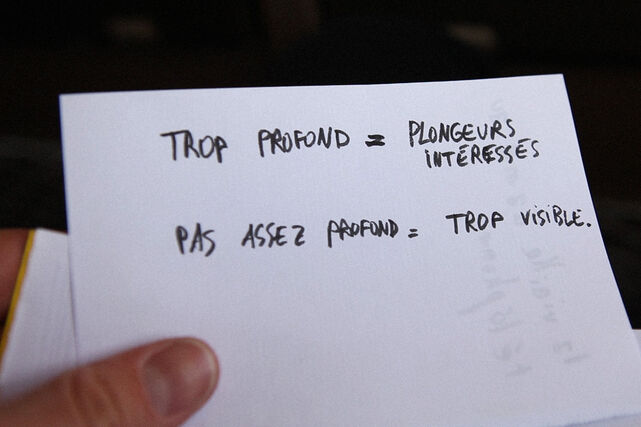 TROP PROFOND = PLONGEURS
INTÉRESSÉS
PAS ASSEZ PROFOND = TROP VISIBLE.